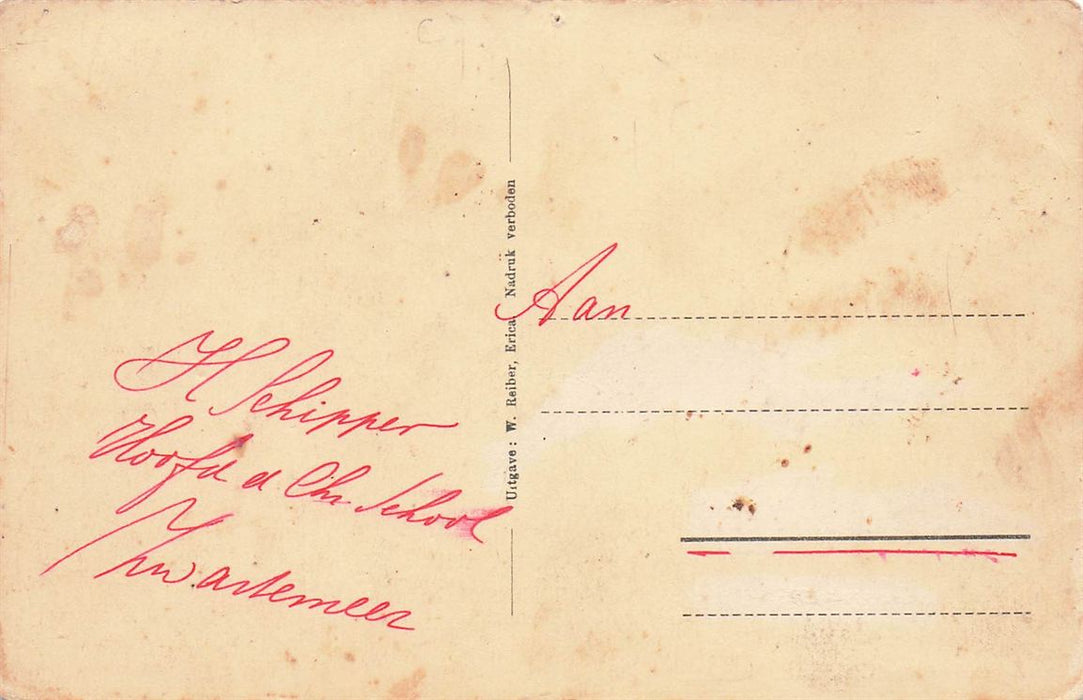 H Schipper
Hoofd d Chr School
Zwartemeer
Uitgave: W. Reiber, Erica. Nadruk verboden
Aan